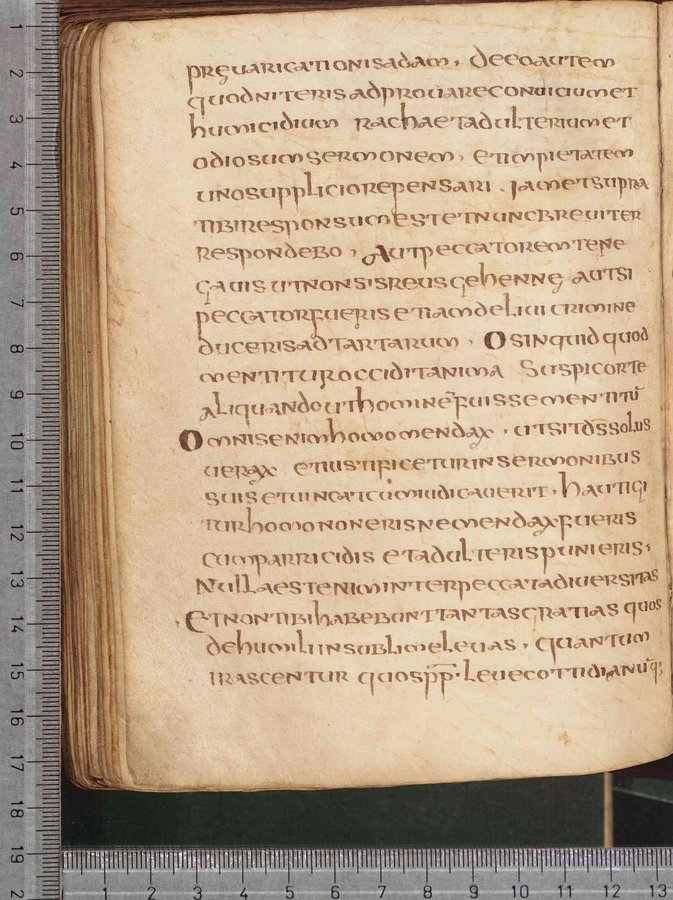 preuaricationisadam, deeoautem
quodniteris adprouareconuiciumet
humicidium rachaetadulteriumet
odiosumsermonem, etimpietatem
unosuppliciorepensari. Iametsupra
tibiresponsumestetnuncbreuiter
respondebo, Autpeccatoremtene
gauis utnonsisreusgehennę autsi
peccatorfueris etiamdeleui crimine
ducerisadtartarum. Osinquid quod
mentitur occiditanima Suspicorte
aliquandouthominēfuissementitū
Omnisenimhomomendax. utsitdssolus
uerax etiustificeturinsermonibus
suisetuincatcūmiudicauerit. hautigi
turhomononerisnemendaxfueris
cumparricidis etadulterispunieris,
Nullaestenīminterpeccatadiuersitas
Etnontibihabebunttantasgratias quos
dehumiliinsublimeleuas, quantum
irascentur quospp̄. leuecottidianūq;
1 2 3 4 5 6 7 8 9 10 11 12 13 14 15 16 17 18 19 2
1 2 3 4 5 6 7 8 9 10 11 12 13